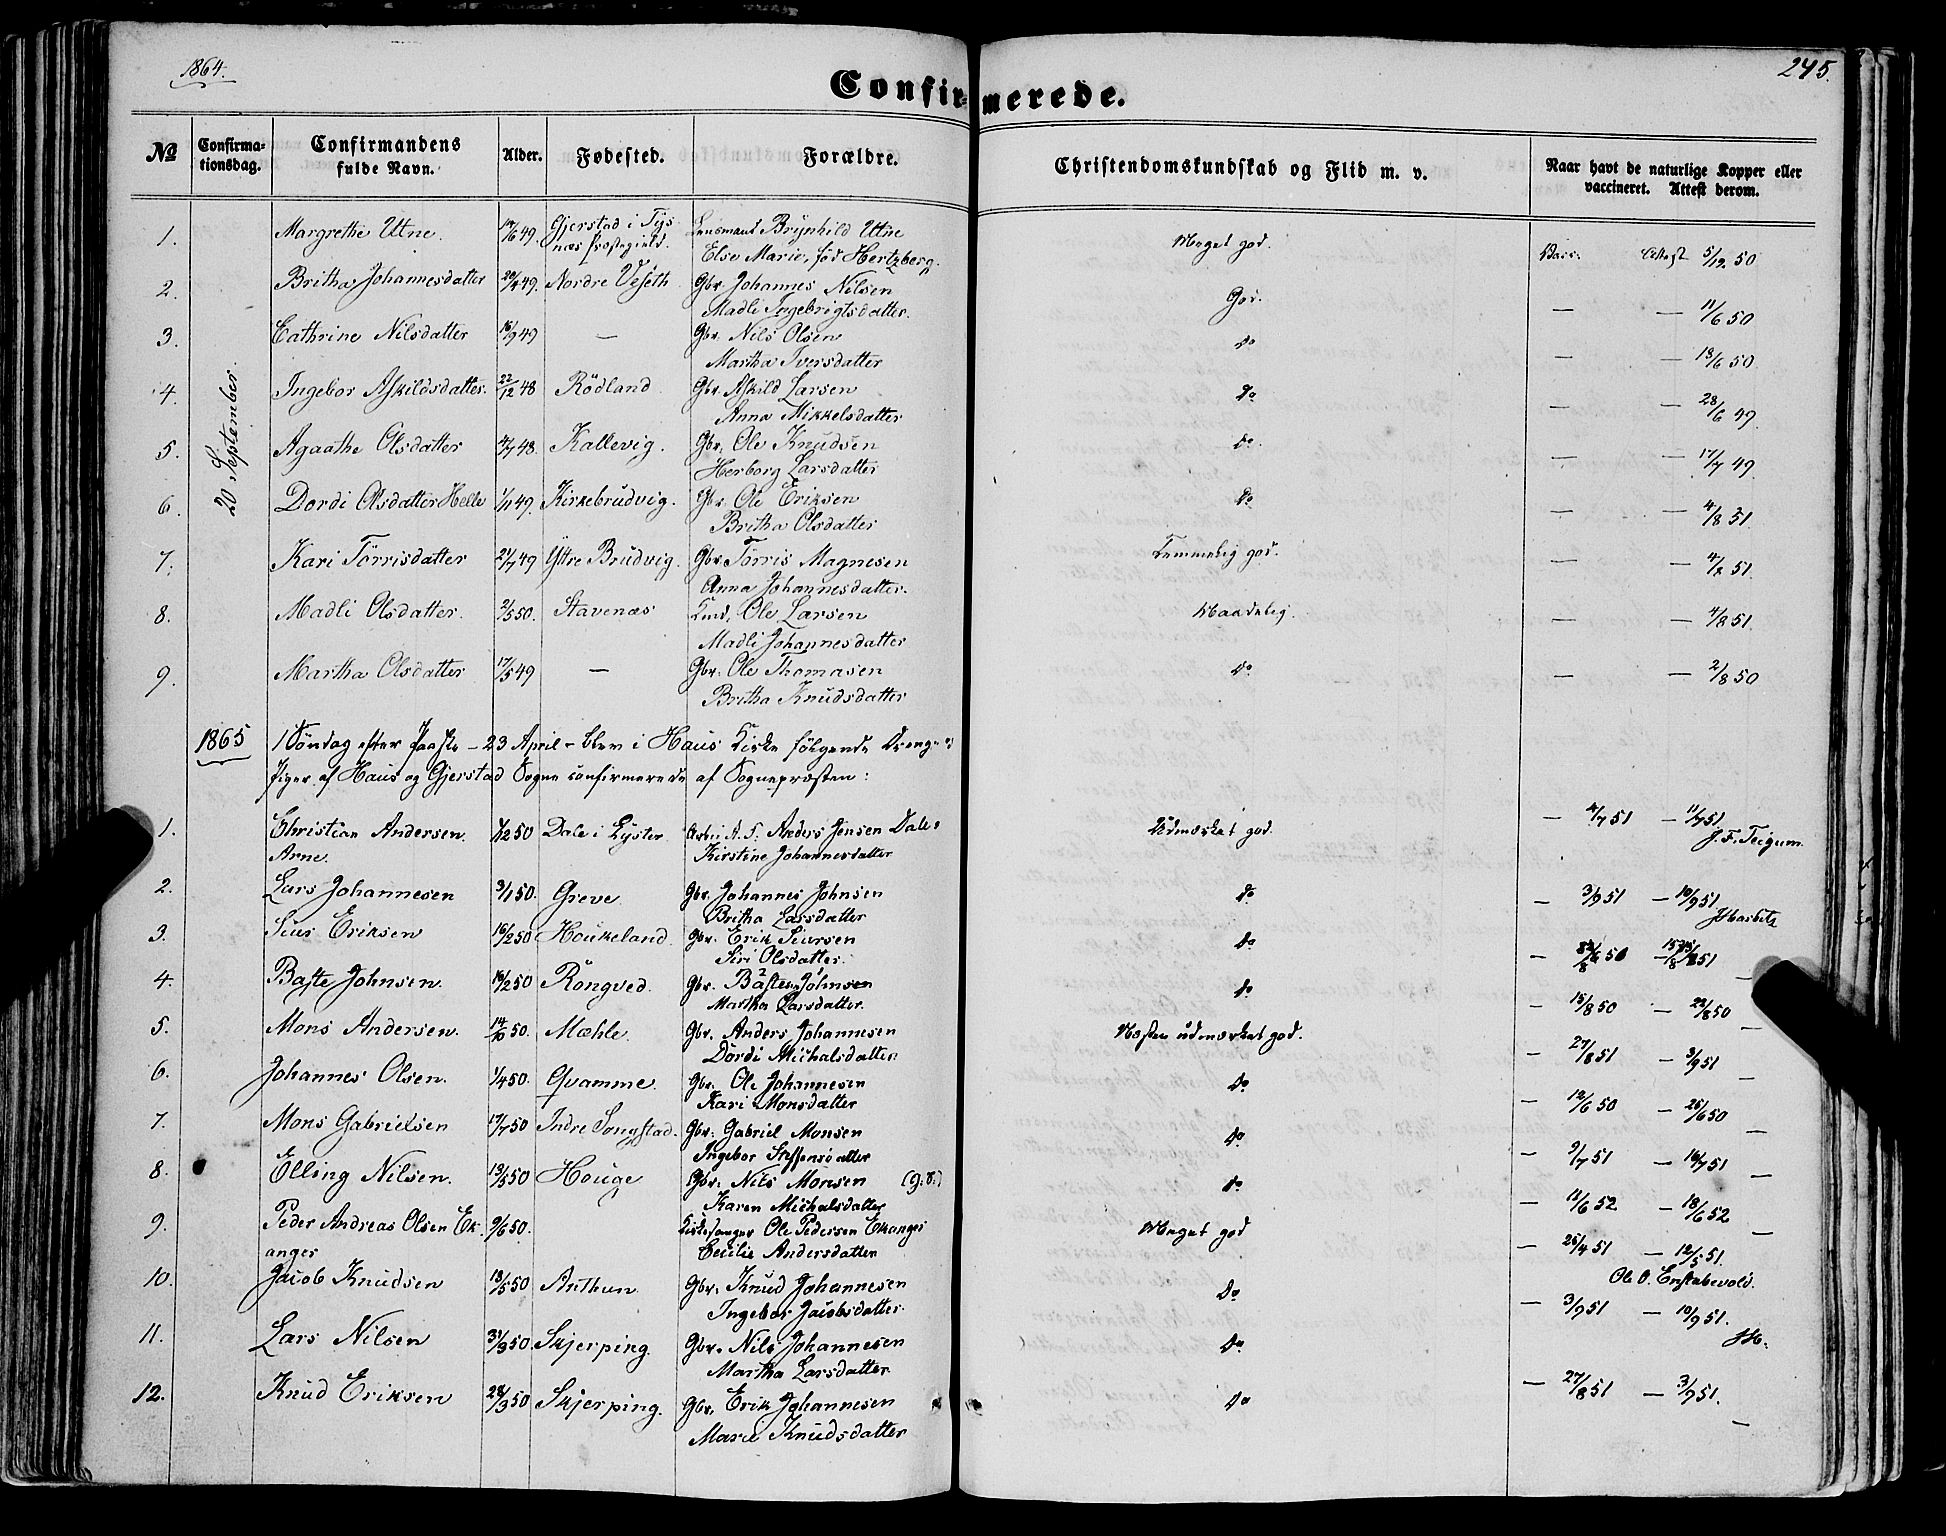 1864.
245.
Confirmerede.
No
Confirmationsdag.
Confirmandens fulde Navn.
Alder.
Fødested.
Forældre.
Christendomskundskab og Flid m. v.
Naar havt de naturlige Kopper eller vaccineret. Attest derom.
20 September.
1. Margrethe Utne. 49. Gjerstad i Tysnæs Lensmand Brynhild Utne Meget god. Vacc. Attest 5/12 50
Else Marie, fød Hertzberg.
2. Britha Johannesdatter 49. Nordre Veseth Gbr. Johannes Nilsen God. — — 11/6 50
Madli Ingebrigtsdatter.
3. Cathrine Nilsdatter 16/9 49 — Gbr. Nils Olsen do — — 18/6 50
Martha Iversdatter
4. Ingebor Askildsdatter. 22/12 48 Rödland Gbr. Askild Larsen do — — 28/6 49
Anna Mikkelsdatter
5. Agaathe Olsdatter 4/7 48. Kallevig. Gbr. Ole Knudsen do. — — 17/7 49
Herborg Larsdatter
6. Dordi Olsdatter Helle 1/11 49. Kirkebrudvig. Gbr. Ole Eriksen do — — 4/8 51
Britha Olsdatter
7. Kari Törrisdatter 21/7 49 Yttre Brudvig. Gbr. Törris Magnesen Temmelig god. — — 51
Anna Johannesdatter.
8. Madli Olsdatter. 2/5 50. Stavenæs Ole Larsen Maadelig. — — 4/8 51
Madli Johannesdatter
9. Martha Olsdatter 17/5 49 — Gbr. Ole Thomasen do — — 2/8 50
Britha Knudsdatter
1865 1 Söndag efter Paaske – 23 April – blev i Haus Kirke fölgende Drenge og
Piger af Haus og Gjerstad Sogne confirmerede af Sognepræsten:
1. Christian Andersen 50 Dale i Lyster Anders Jensen Dale: Udmærket god. — 4/7 51 — 11/7 51
Arne. Kirstine Johannesdatter J. F. Teigum.
2. Lars Johannesen 3/1 50. Greve Gbr. Johannes Johnsen do — 3/9 51 — 10/9 51
Britha Larsdatter
3. Siur Eriksen 16/2 50 Houkeland. Gbr. Erik Siursen do
Siri Olsdatter.
4. Baste Johnsen. 16/2 50 Röngved. Gbr. Basten Johnsen do — 15/8 50 — 22/8 50
Martha Larsdatter. —
5. Mons Andersen. 14/10 50. Mæhle. Gbr. Anders Johannesen Næsten udmærket god. — 27/8 51 — 3/9 51
Dordi Michalsdatter —
6. Johannes Olsen. 1/4 50. Qvamme. Gbr. Ole Johannesen do — 12/6 50 — 26/6 50
Kari Monsdatter —
7. Mons Gabrielsen 17/7 50 Indre Songstad. Gbr. Gabriel Monsen do — 9/7 51 — 16/7 51
Ingebor Steffensdatter —
8. Elling Nilsen. 13/5 50 Houge Gbr. Nils Monsen do — 11/6 52 — 18/6 52
Karen Michalsdatter —
9. Peder Andreas Olsen Ek- 9/6 50. Kirkesanger Ole Pedersen Ekanger Meget god — 26/4 51 — 12/5 51.
anger Cecilie Andersdatter
10. Jacob Knudsen 13/5 50 Arthun Gbr. Knud Johannesen do — 3/9 51 — 10/9 51.
Ingebor Jacobsdatter
11. Lars Nilsen 31/3 50. Skjerping. Gbr. Nils Johannesen do
Martha Larsdatter
12. Knud Eriksen 28/3 50 Skjerping. Gbr. Erik Johannesen do — 27/8 51 — 3/9 51.
Marie Knudsdatter —